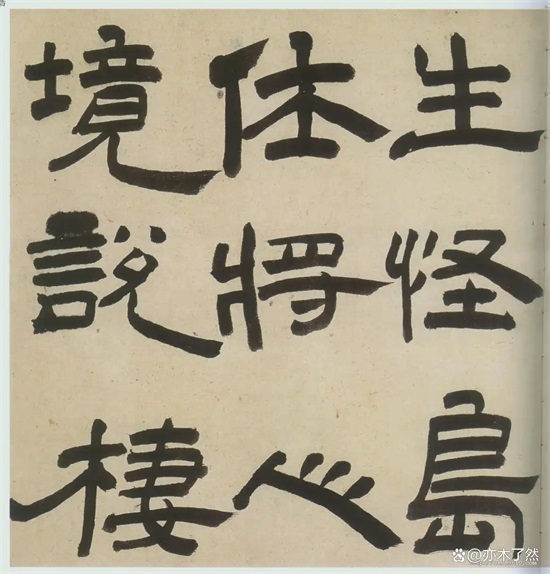 生怪島
任將心
境說棲
@亦木了然